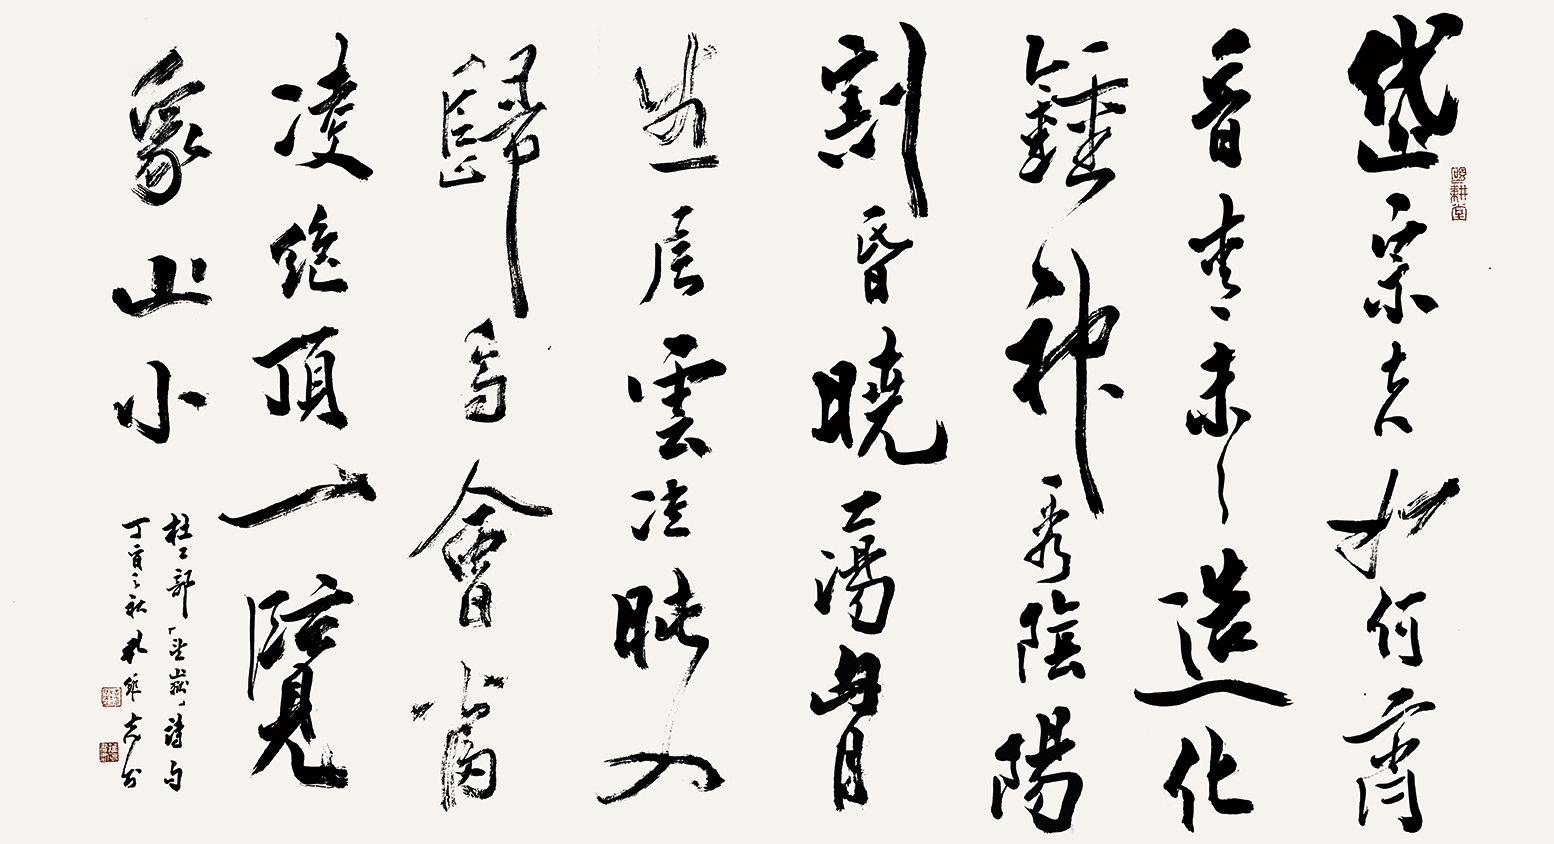 硯耕堂
岱宗夫如何齊
魯青未了造化
鍾神秀陰陽
割昏曉蕩胷
生層雲決眥入
歸鳥會當
凌絕頂一覽
衆山小
杜工部「望嶽」詩句
丁酉之秋 孔維克書